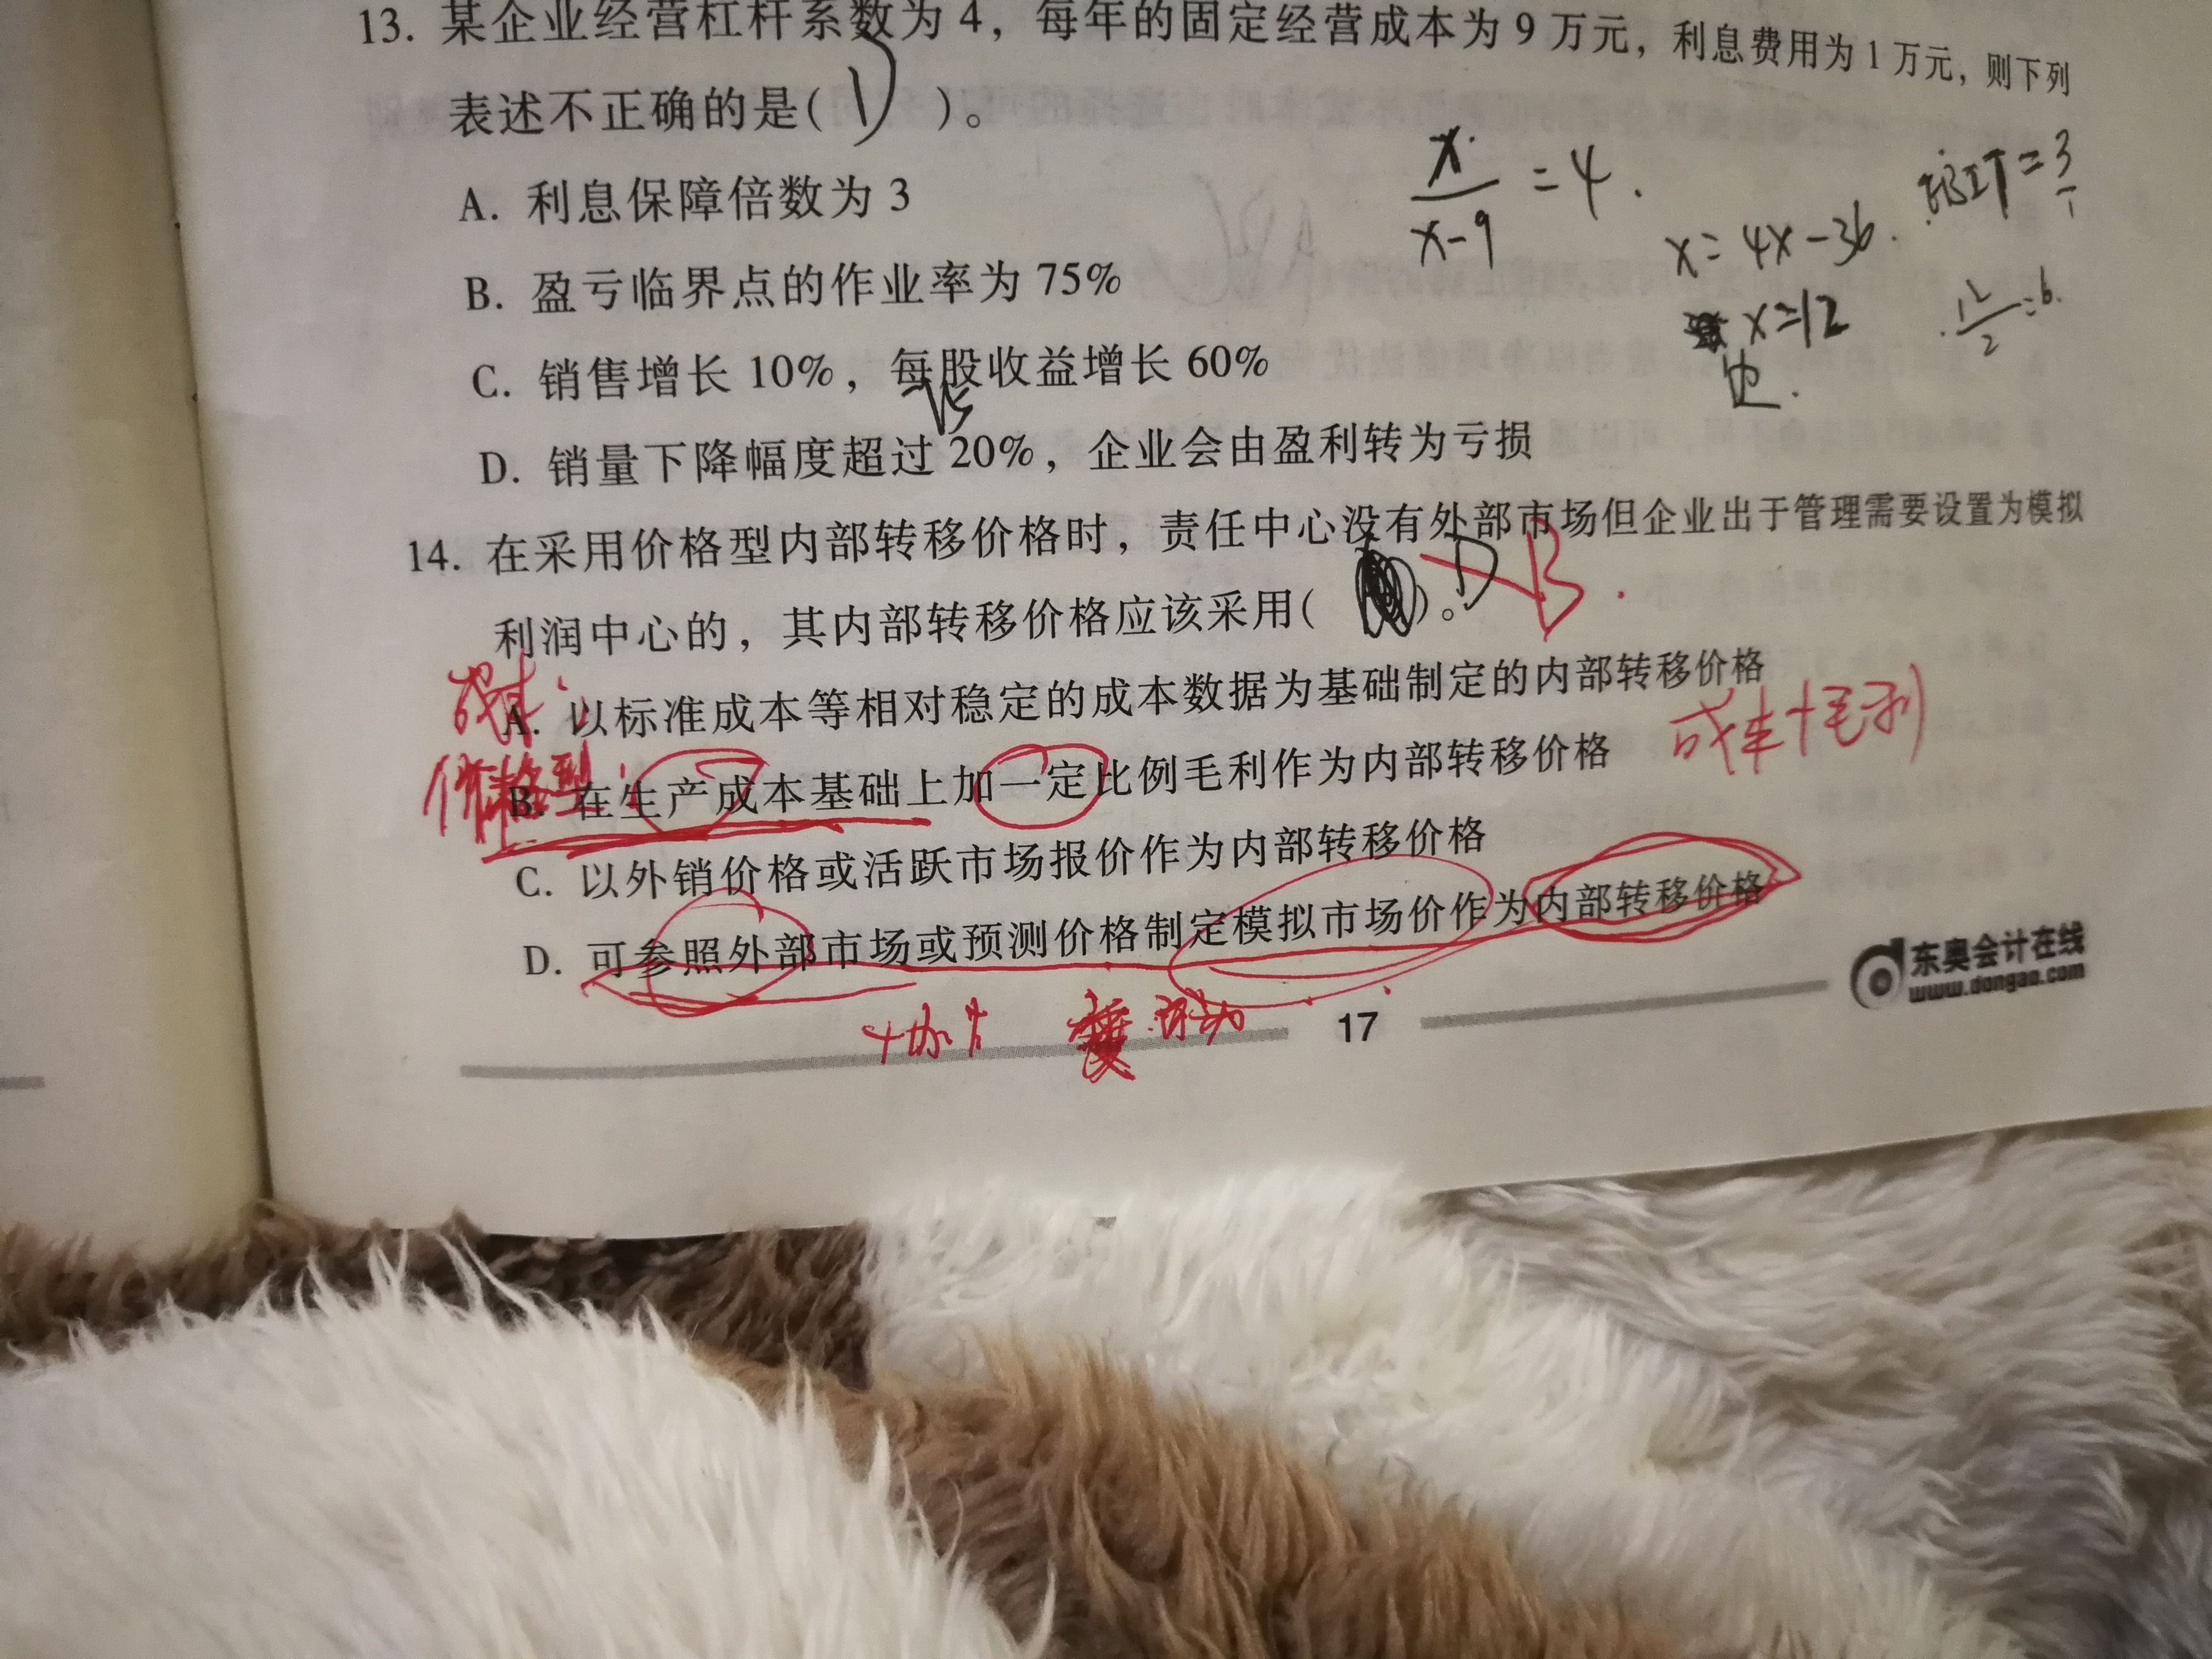 13. 某企业经营杠杆系数为 4，每年的固定经营成本为 9 万元，利息费用为 1 万元，则下列
表述不正确的是( D )。
x/(x-9) = 4.
EBIT = 3
A. 利息保障倍数为 3
x = 4x - 36.
B. 盈亏临界点的作业率为 75%
x = 12
12/2 = 6.
C. 销售增长 10%，每股收益增长 60%
D. 销量下降幅度超过 20%，企业会由盈利转为亏损
14. 在采用价格型内部转移价格时，责任中心没有外部市场但企业出于管理需要设置为模拟
D B.
利润中心的，其内部转移价格应该采用( )。
成本：
A. 以标准成本等相对稳定的成本数据为基础制定的内部转移价格
成本+毛利
价格型：
B. 在生产成本基础上加一定比例毛利作为内部转移价格
C. 以外销价格或活跃市场报价作为内部转移价格
D. 可参照外部市场或预测价格制定模拟市场价作为内部转移价格
东奥会计在线
www.dongao.com
17